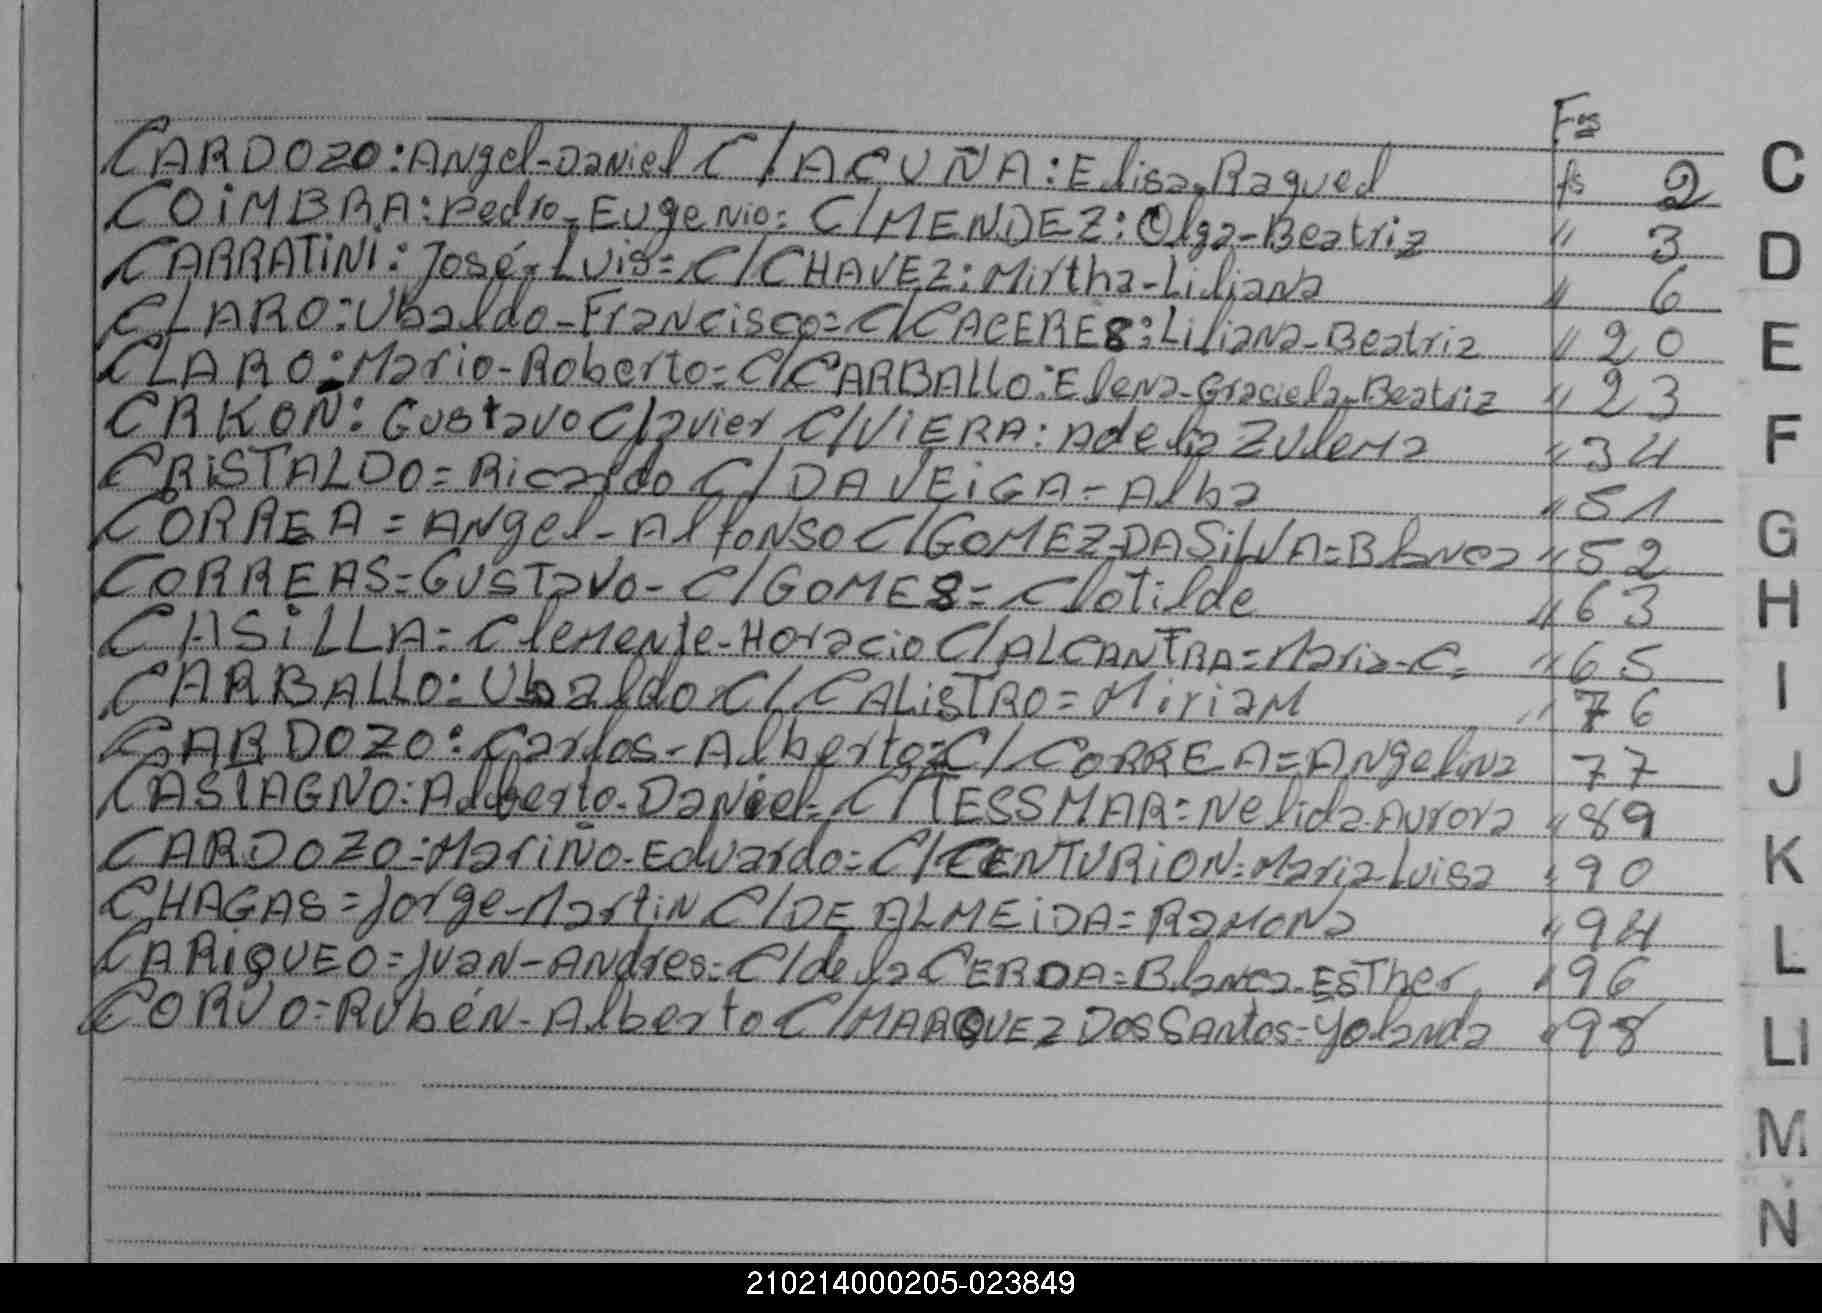 Fs
CARDOZO: Angel-Daniel C/ACUÑA: Elisa-Raquel fs 2
COiMBRA: Pedro-Eugenio= C/MENDEZ: Olga-Beatriz " 3
CARRATiNi: José-Luis= C/CHAVEZ: Mirtha-Liliana " 6
CLARO: Ubaldo-Francisco= C/CACERES: Liliana-Beatriz " 20
CLARO: Mario-Roberto= C/CARBALLO: Elena-Graciela-Beatriz " 23
CRKON: Gustavo Clavier C/ViERA: Adelia Zulema " 34
CRiSTALDO= Ricardo C/DA VEiGA= Alba " 51
CORREA= Angel-Alfonso C/GOMEZ-DASiLVA= Blanca " 52
CORREAS= Gustavo- C/GOMES= Clotilde " 63
CASiLLA= Clemente-Horacio C/ALCANTRA= Maria-C= " 65
CARBALLO: Ubaldo C/CALiSTRO= Miriam " 76
CARDOZO: Carlos-Alberto= C/CORREA= Angelina 77
CASTAGNO: Adberto-Daniel= C/TESSMAR: Nelida-Aurora " 89
CARDOZO: Mariño-Eduardo= C/CENTURiON: Maria-Luisa " 90
CHAGAS= Jorge-Martin C/DE ALMEiDA= Ramona " 94
CARiQUEO= Juan-Andres= C/de la CERDA= Blanca-Esther " 96
CORVO= Rubén-Alberto C/MARQUEZ Dos Santos= Yolanda " 98
C
D
E
F
G
H
I
J
K
L
Ll
M
N
210214000205-023849